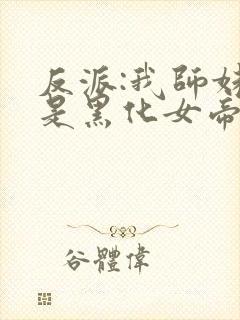 反派:我師
是黑化女帝
谷體偉